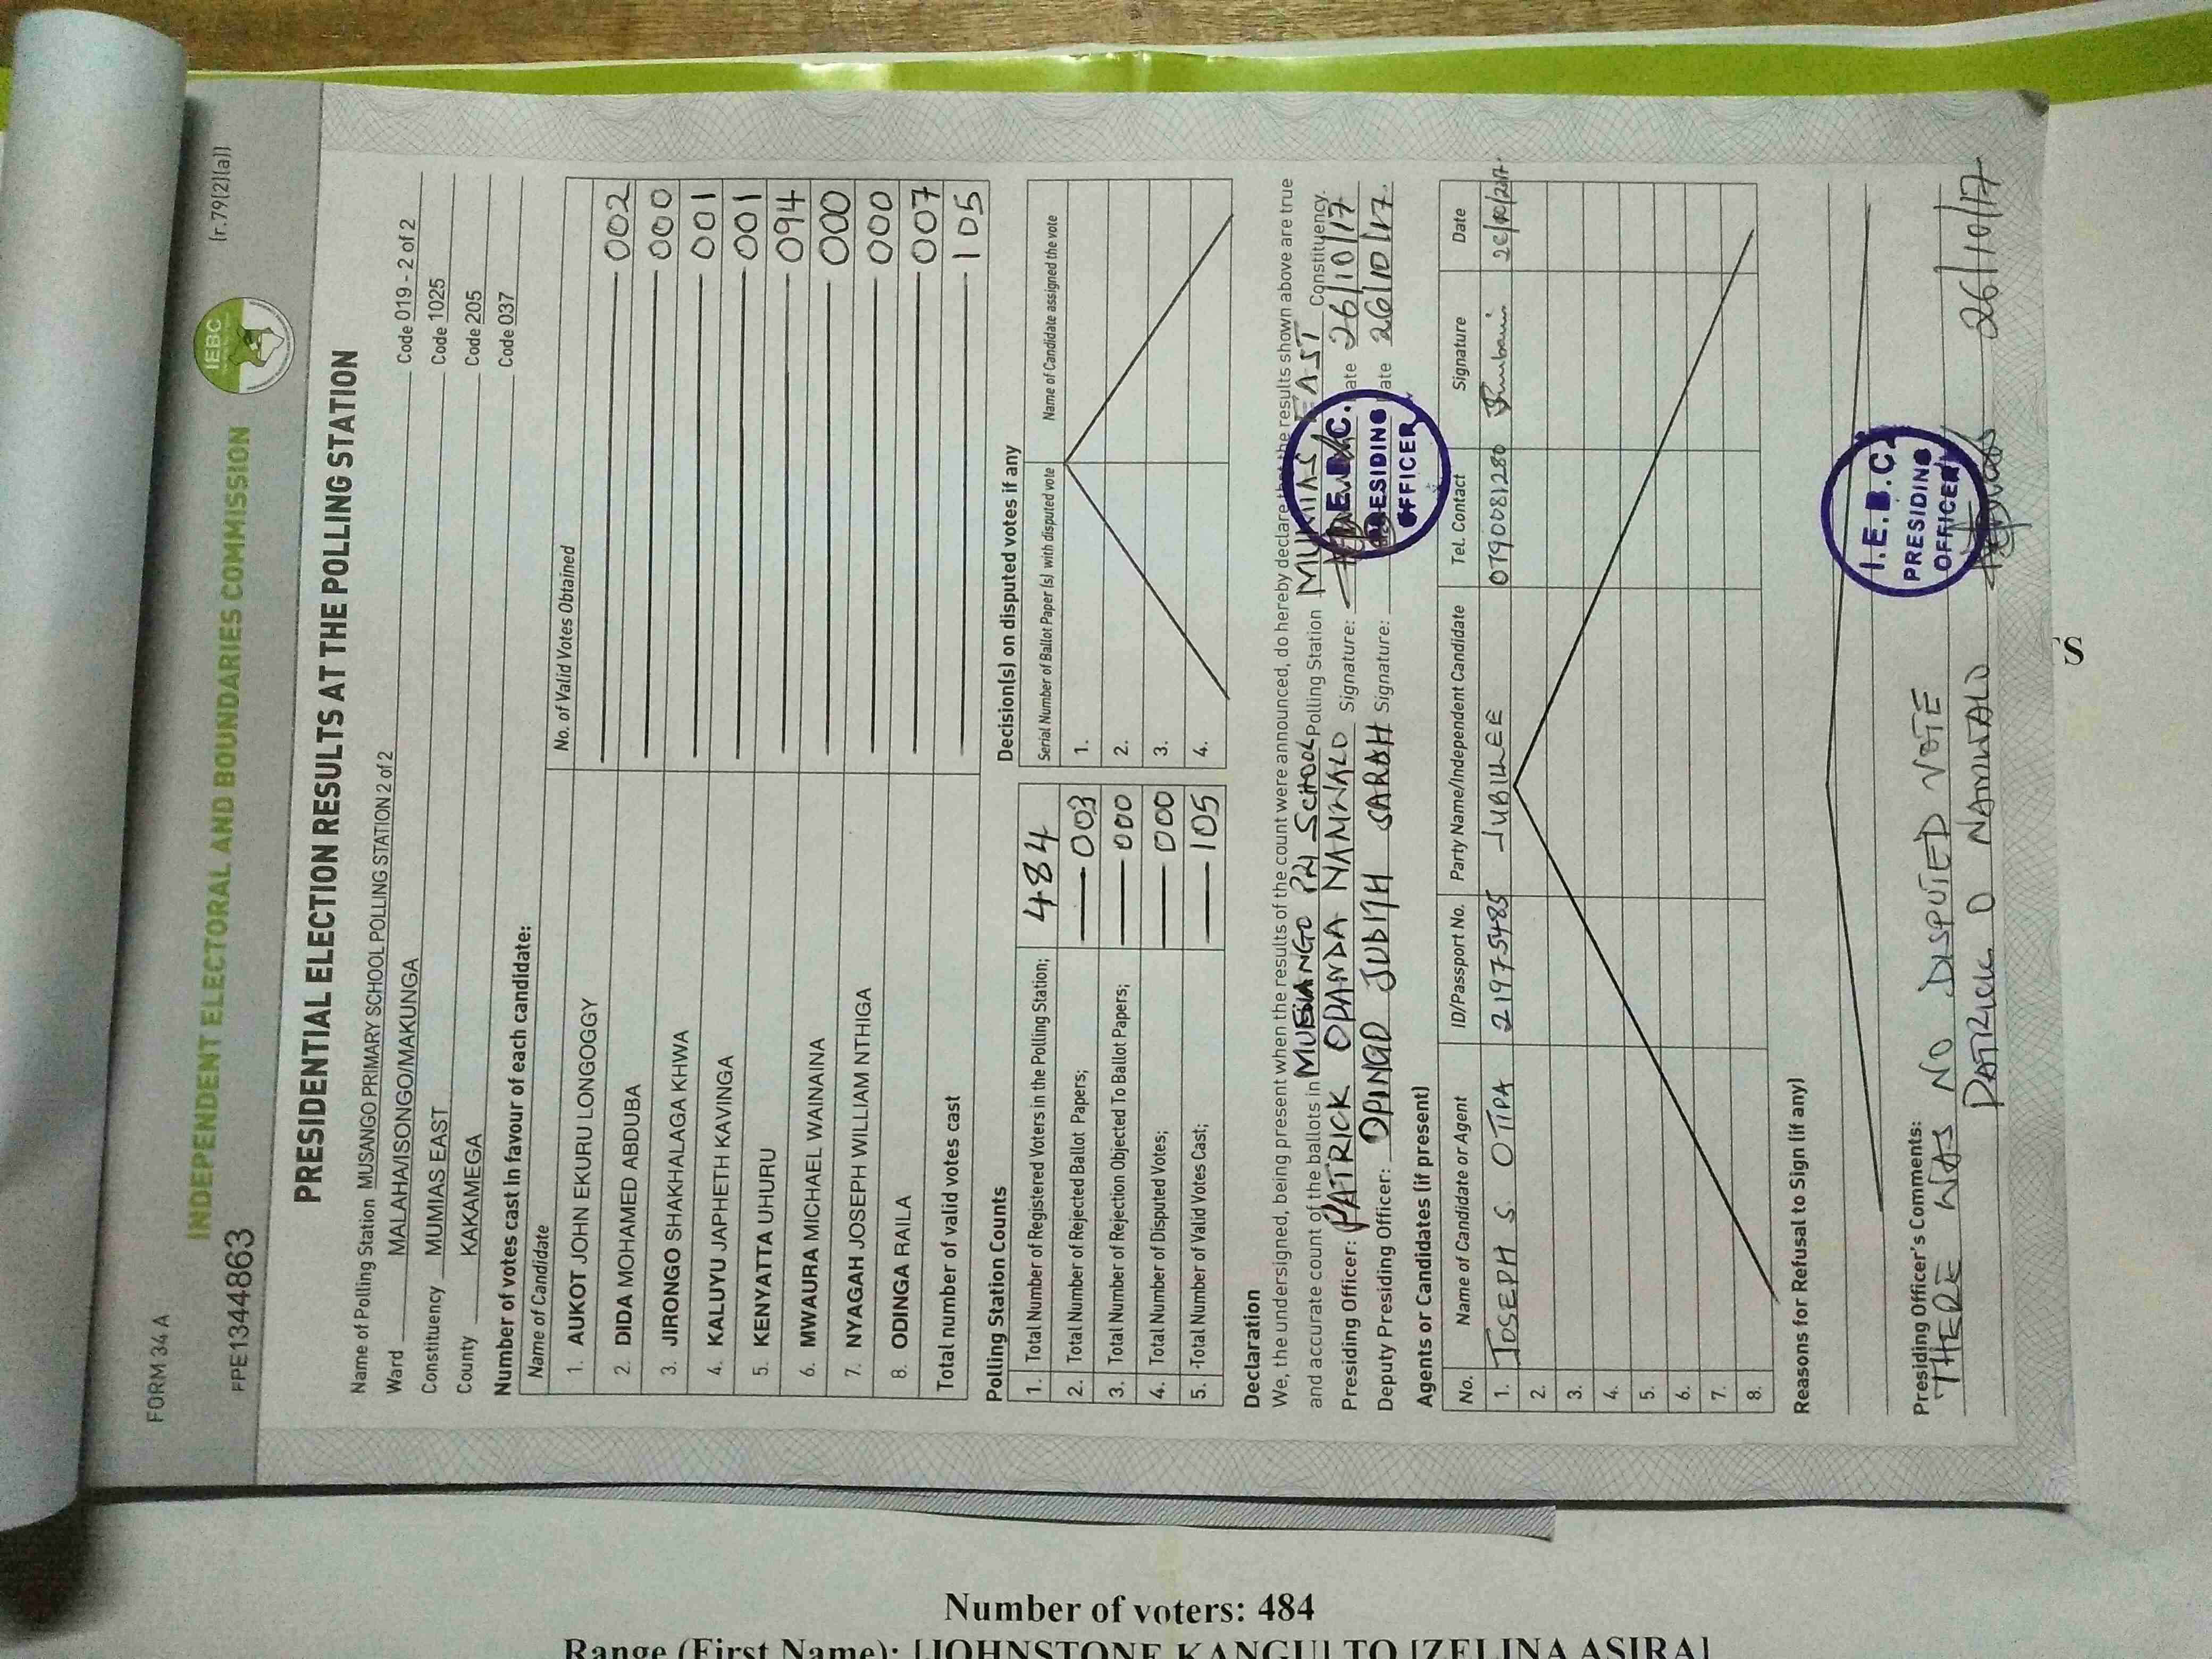 FORM 34 A
PPE1344863
INDEPENDENT ELECTORAL AND BOUNDARIES COMMISSION
IEBC
(r.79(2)(a))
PRESIDENTIAL ELECTION RESULTS AT THE POLLING STATION
Name of Polling Station MUSANGO PRIMARY SCHOOL POLLING STATION 2 of 2 Code 019 - 2 of 2
Ward MALAHA/ISONGO/MAKUNGA Code 1025
Constituency MUMIAS EAST Code 205
County KAKAMEGA Code 037
Number of votes cast in favour of each candidate:
Name of Candidate No. of Valid Votes Obtained
1. AUKOT JOHN EKURU LONGOGGY 002
2. DIDA MOHAMED ABDUBA 000
3. JIRONGO SHAKHALAGA KHWA 001
4. KALUYU JAPHETH KAVINGA 001
5. KENYATTA UHURU 094
6. MWAURA MICHAEL WAINAINA 000
7. NYAGAH JOSEPH WILLIAM NTHIGA 000
8. ODINGA RAILA 007
Total number of valid votes cast 105
Polling Station Counts
1. Total Number of Registered Voters in the Polling Station; 484
2. Total Number of Rejected Ballot Papers; 003
3. Total Number of Rejection Objected To Ballot Papers; 000
4. Total Number of Disputed Votes; 000
5. Total Number of Valid Votes Cast; 105
Decision(s) on disputed votes if any
Serial Number of Ballot Paper (s) with disputed vote Name of Candidate assigned the vote
1.
2.
3.
4.
Declaration
We, the undersigned, being present when the results of the count were announced, do hereby declare that the results shown above are true
and accurate count of the ballots in PRI SCHOOL Polling Station MUMIAS EAST Constituency.
Presiding Officer: PATRICK ODANDA NAMWALO Signature: Date 26/10/17
Deputy Presiding Officer: OPINGO JUDITH SARAH Signature: Date 26/10/17
I.E.B.C.
PRESIDING
OFFICER
Agents or Candidates (if present)
No. Name of Candidate or Agent ID/Passport No. Party Name/Independent Candidate Tel. Contact Signature Date
1. JOSEPH S. OTIPA 21975485 JUBILEE 0790081280 26/10/2017
2.
3.
4.
5.
6.
7.
8.
Reasons for Refusal to Sign (if any)
Presiding Officer's Comments:
THERE WAS NO DISPUTED VOTE
PATRICK O NAMWALO 26/10/17
I.E.B.C.
PRESIDING
OFFICER
Number of voters: 484
Range (First Name): [JOHNSTONE KANGU] TO [ZELINA ASIRA]